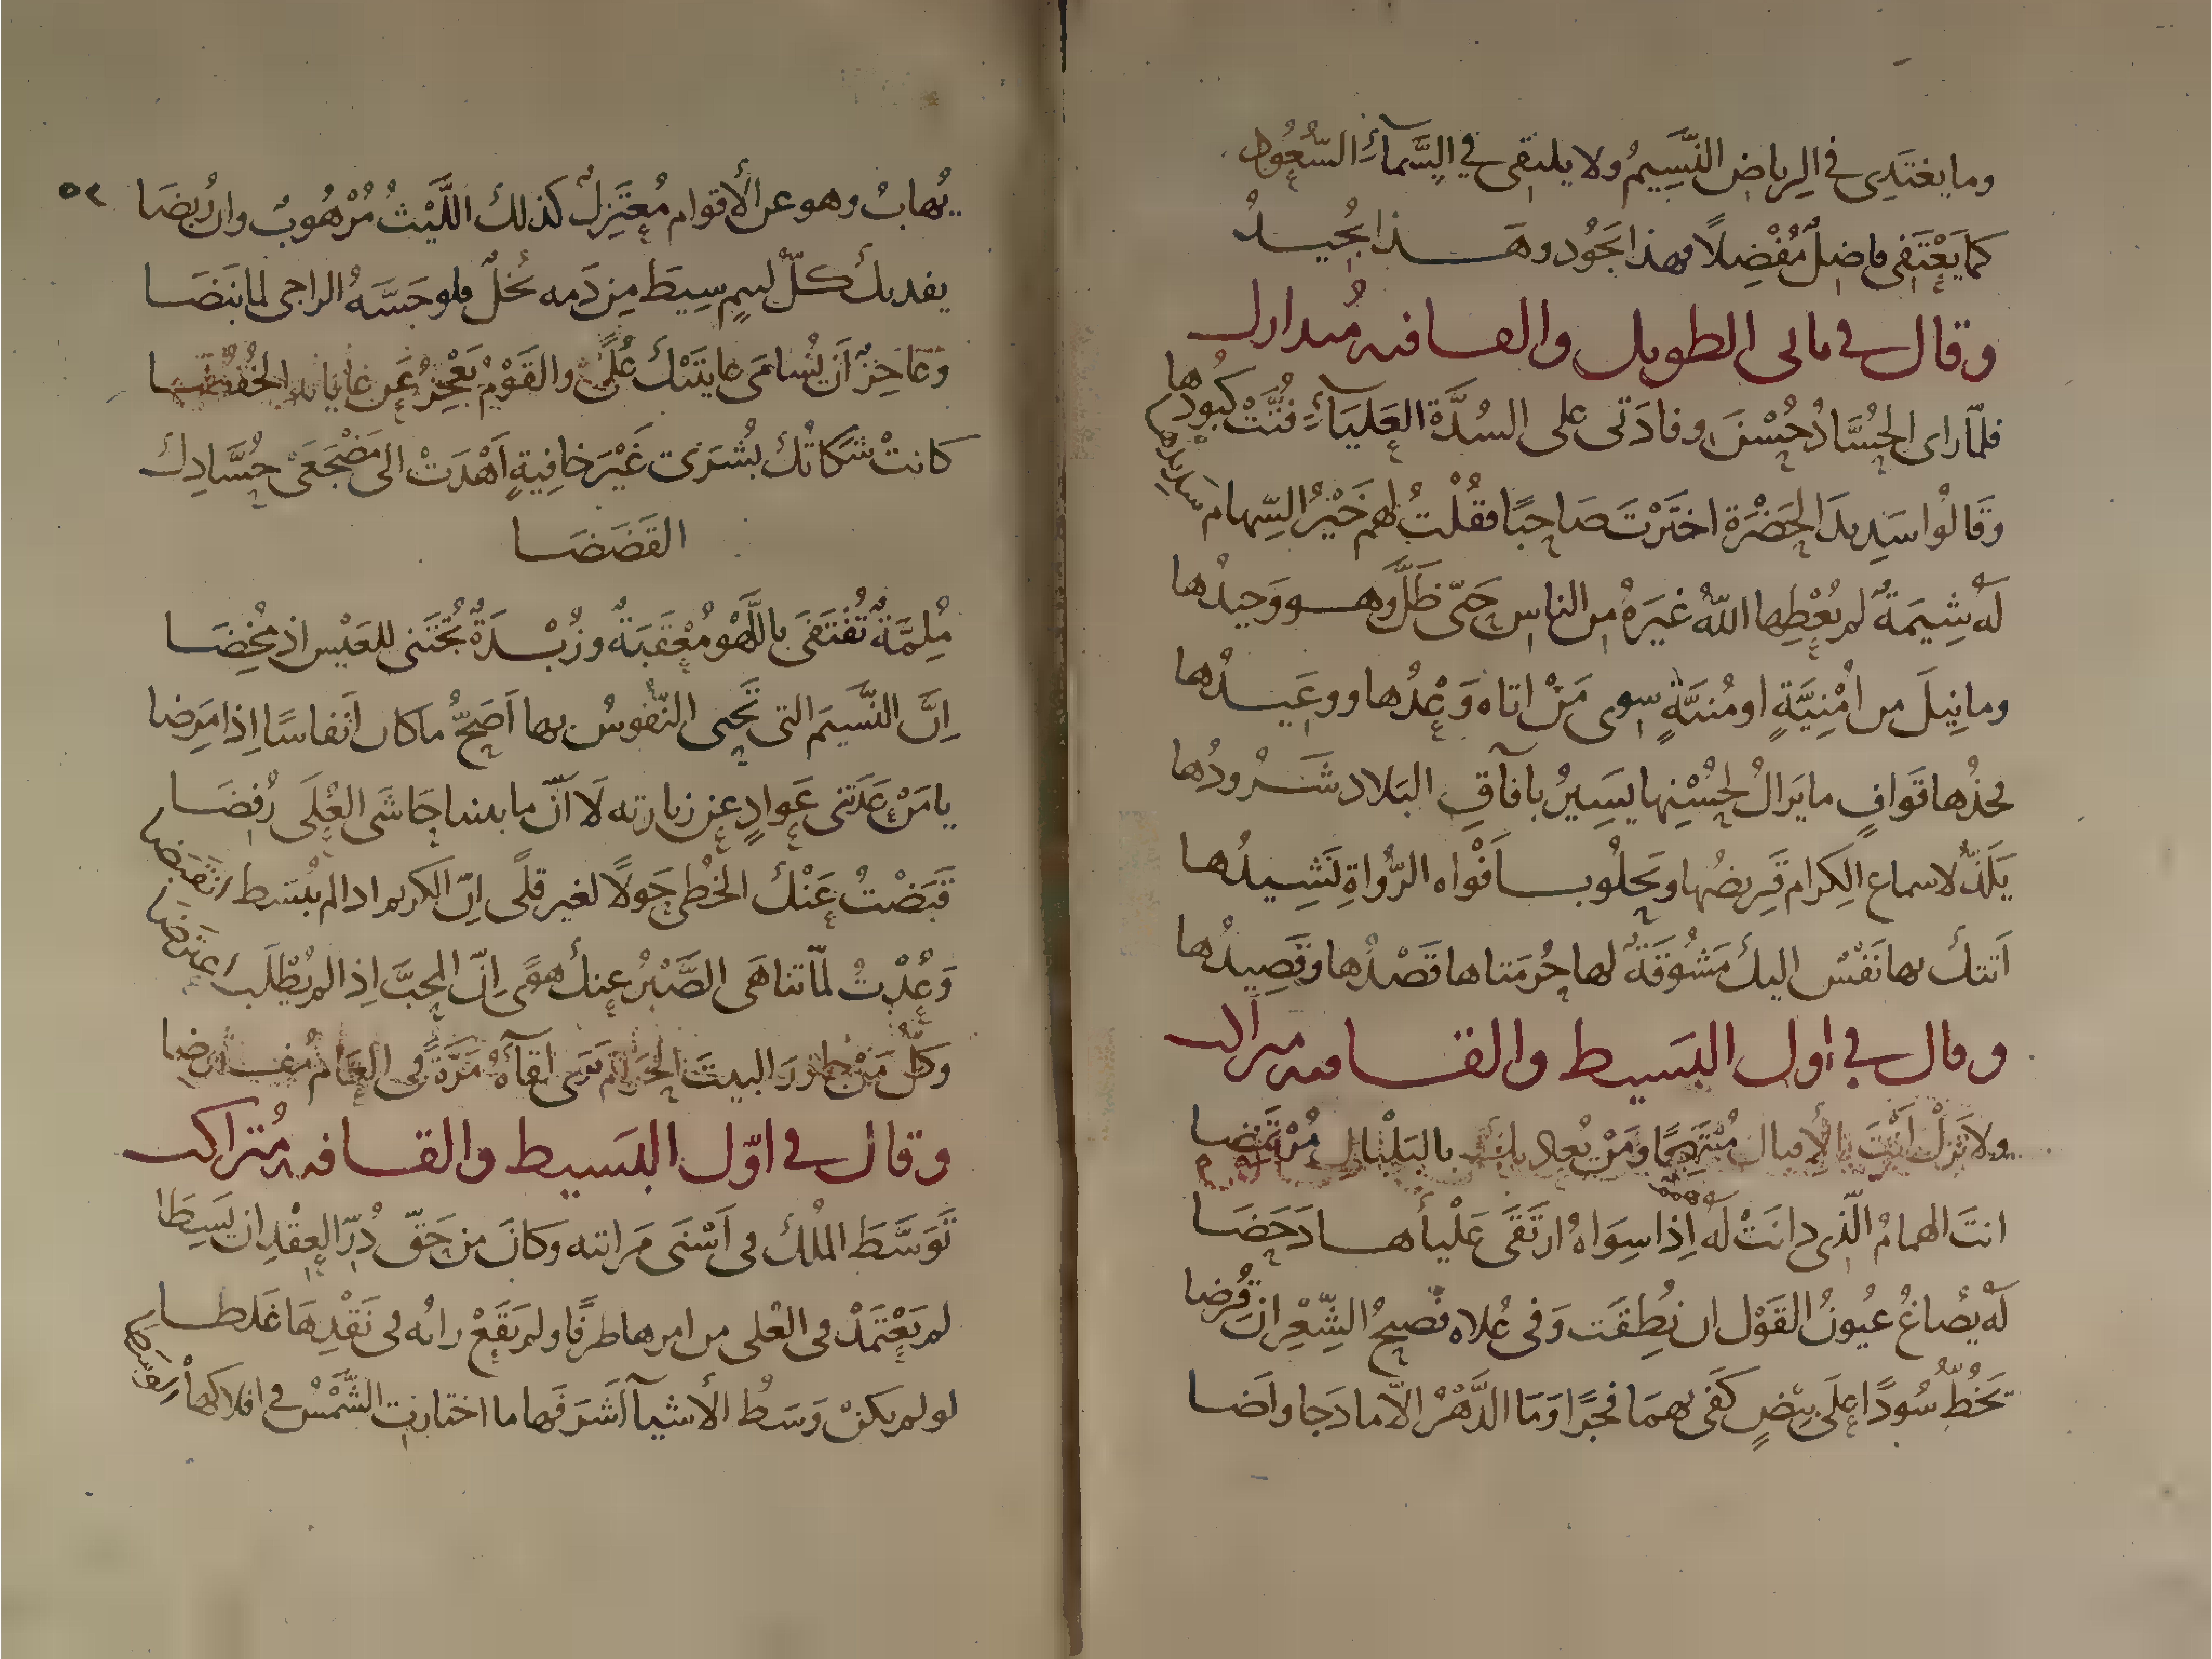 وما يغتَدِى في الرياض النَّسِيمُ ولا يلتقى في السَّمآءِ السُّعُودُ
كما يَعْتَفى فاضِلٌ مُفْضِلًا فهذا يَجُود وهَذا يُجِيدُ
وقال في ثانى الطويل والقافيه مُتدارك
فلمّا راى الحُسَّادُ حُسْنَ وفادَتى على السُدَّة العَليَآءِ فُتَّتْ كُبُودُها
وَقَالُوا سَدِيدَ الحَضْرَة اختَرْتَ صَاحِبًا فقُلْتُ لهم خَيْرُ السِّهام سَدِيدُها
لَهُ شِيمَةٌ لم يُعْطِها اللّهُ غيَرهُ من الناسِ حَتّى ظَلَّ وهو وَحِيدُها
وما نِيلَ من امْنِيَّةٍ او مُنيَّةٍ سِوى مَنْ اتاه وَعْدُها ووعَيدُها
فخذُها قَوافٍ ما يَزالُ لحُسْنِها يَسِيرُ بافآقِ البَلاد شَرُودُها
يَلَذّ لاسماع الكِرام قَرِيضُها ويَحلُو بافْواه الرُّواةِ نَشِيدُها
اَتتكَ بها نَفْسٌ اليكَ مَشُوقَةٌ لها حُرمَتاها قَصْدُها وقَصِيدُها
وقال في اول البَسيط والقافيه متراكب
ولا تَزلْ انْتَ بالإقبال وَمَنْ يُعاديك بالبَلْبال مُرْتَمَضا
انتَ الهمامُ الّذِى دانَتْ لَهُ اِذا سِوَاهُ ارتَقَى عَلْيأها دَحَضَا
لَهُ يُصاغُ عيُونُ القَوْل ان نُطِقَت وَفى عُلاه فصيحُ الشِّعْرِ ان قُرِضا
تَخُطّ سُودًا عَلَى بِيْضٍ كَفَى بهمَا فخرًا وَمَا الدَّهْرُ الّا ما دَجا واَضا
٥٢
يُهابُ وهو عن الأقوام مُعتَزِلٌ كذلكَ اللَّيْثُ مُرْهُوبٌ وان رُبضَا
يفديكَ كلّ لئيمٍ سِيطَ مِن دَمه بُخلٌ فلو جَسَّهُ الراجى لما نَبَضَا
وعَاجِزٌ اَن يُسَامَى غايتَيْكَ عُلًى والقَوْمُ يَعْجِزُ عَن غاياته
كانتْ شَكاتُكَ بُشرَى غَيْرَ خافِيةٍ اَهْدَتْ الى مَضْجَعَىْ حُسَّادِكَ
القَضَضَا
مُلِمَّةٌ تُقْتَفَى باللَّهْو مُعْقَبَةٌ وزُبْدَةٌ تُجْتَنى للعَيْس اذ مُخِضَا
اِنَّ النَّسيَم التى تَحْيى النّفُوسُ بها اَصَحُّ ما كان اَنفاسًا اِذا مَرِضا
يا مَنْ عَدَتنى عَوادٍ عن زيارته لَا اَنّ ما بيننا حَاشَى العُلَى رُفِضَا
قَبَضْتُ عَنْكَ الخُطى حَولًا لغير قلًى اِنّ الكريم اذا لم يُبْسَط انْقبَضا
وَعُدْتُ لمّا تناهَى الصَّبْرُ عنكَ هوًى اِنّ المحِبَّ اِذا لم يُطْلَب اعْتَرَضا
وكلُّ مَنْ البيتَ الحَرامَ مَرَّةً فى العَام مُفتَرَضا
وقال في اوّل البَسيط والقافيه مُتراكب
تَوَسَّطَ المُلكَ فى اَسْنَى مَراتبه وَكانَ من حَقّ دُرّ العِقْدِ ان يَسِطَا
لم يَعْتَمَدْ فى العُلى من امرها طرفًا ولم يَقَعْ رائه فى نَقْدِهَا غَلطا
لو لم يكنْ وَسَطُ الأشيآ اَشَرَفَها ما اختارت الشّمْسُ في افلاكها